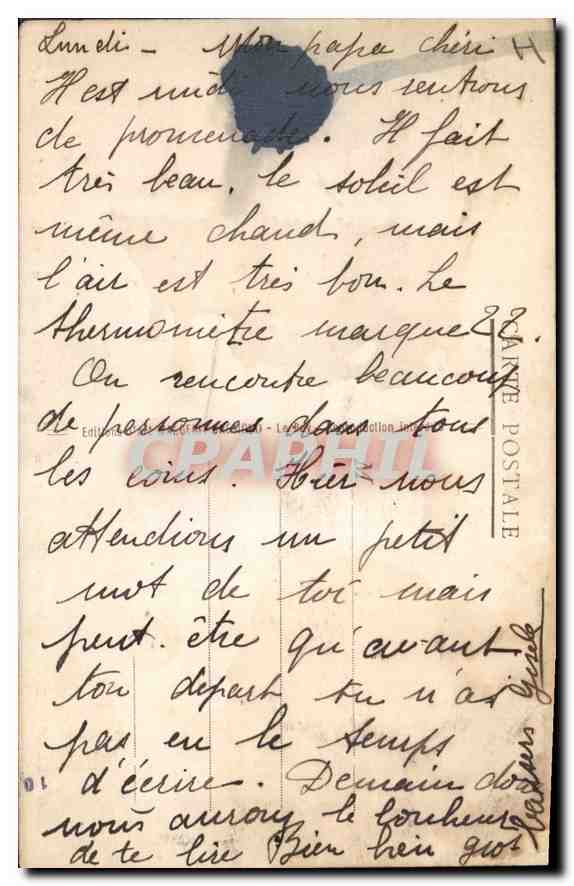 Lundi - Mon papa chéri
H
Il est midi nous rentrons
de promenade. Il fait
très beau, le soleil est
même chaud, mais
l'air est très bon. Le
thermomètre marque 22.
On rencontre beaucoup
de personnes dans tous
les coins. Hier nous
attendions un petit
mot de toi mais
peut-être qu'avant
ton départ tu n'as
pas eu le temps
d'écrire. Demain
nous aurons le bonheur
de te lire Bien bien gros
baisers Gisele
CARTE POSTALE
Editions
CPARPHIL
10